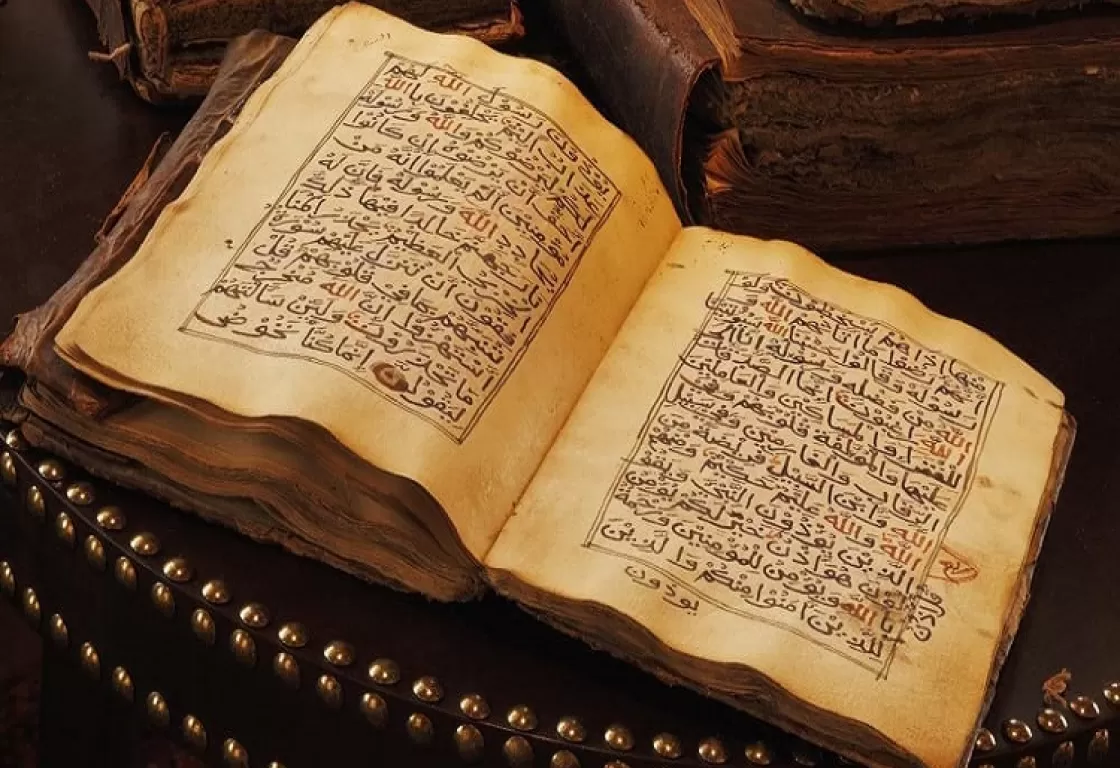 منها اذا هم يسخطون ولو
انهم رضوا ما ءاتاهم الله و
رسوله وقالوا حسبنا الله سيوتينا
الله من فضله ورسوله انا الى
الله
للفقراء والمساكين والعاملين
عليها والمولفة قلوبهم وفي
الرقاب والغارمين وفي سبيل
الله وابن السبيل فريضة من
الله والله عليم حكيم ومنهم
الذين يوذون النبي ويقولون
هو اذن قل اذن خير لكم يومن
بالله ويومن للمومنين ورحمة
للذين ءامنوا منكم والذين
يوذون
رسول الله لهم
عذاب اليم يحلفون بالله
لكم ليرضوكم والله ورسوله
احق ان يرضوه ان كانوا
مومنين الم يعلموا انه من
الله ورسوله فان له
جهنم خالدا فيها ذلك
الخزي العظيم يحذر المنا
فقون ان تنزل عليهم سورة
تنبئهم بما في قلوبهم قل
استهزءوا ان الله مخرج
ما تحذرون ولئن سالتهم
ليقولن انما كنا نخوض